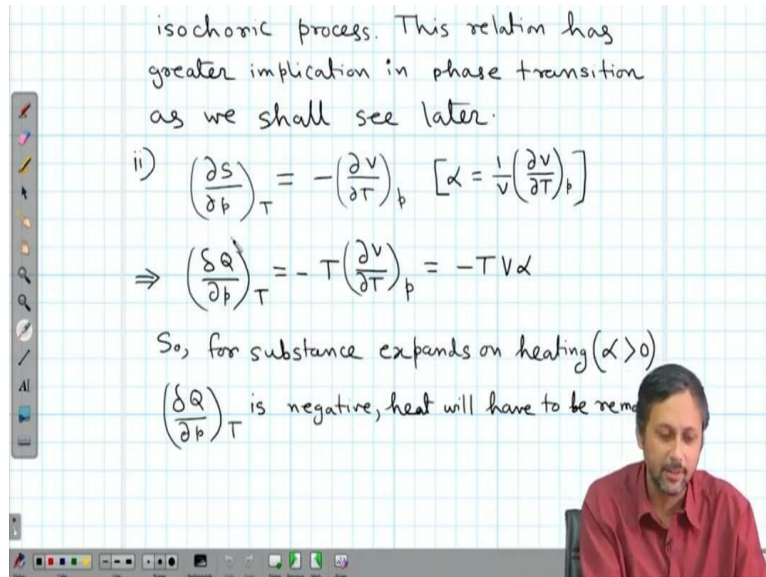 isochoric process. This relation has
greater implication in phase transition
as we shall see later.
ii) (∂S/∂p)_T = -(∂V/∂T)_p [α = 1/V (∂V/∂T)_p]
⇒ (δQ/∂p)_T = - T(∂V/∂T)_p = -TVα
So, for substance expands on heating (α>0)
(δQ/∂p)_T is negative, heat will have to be remo